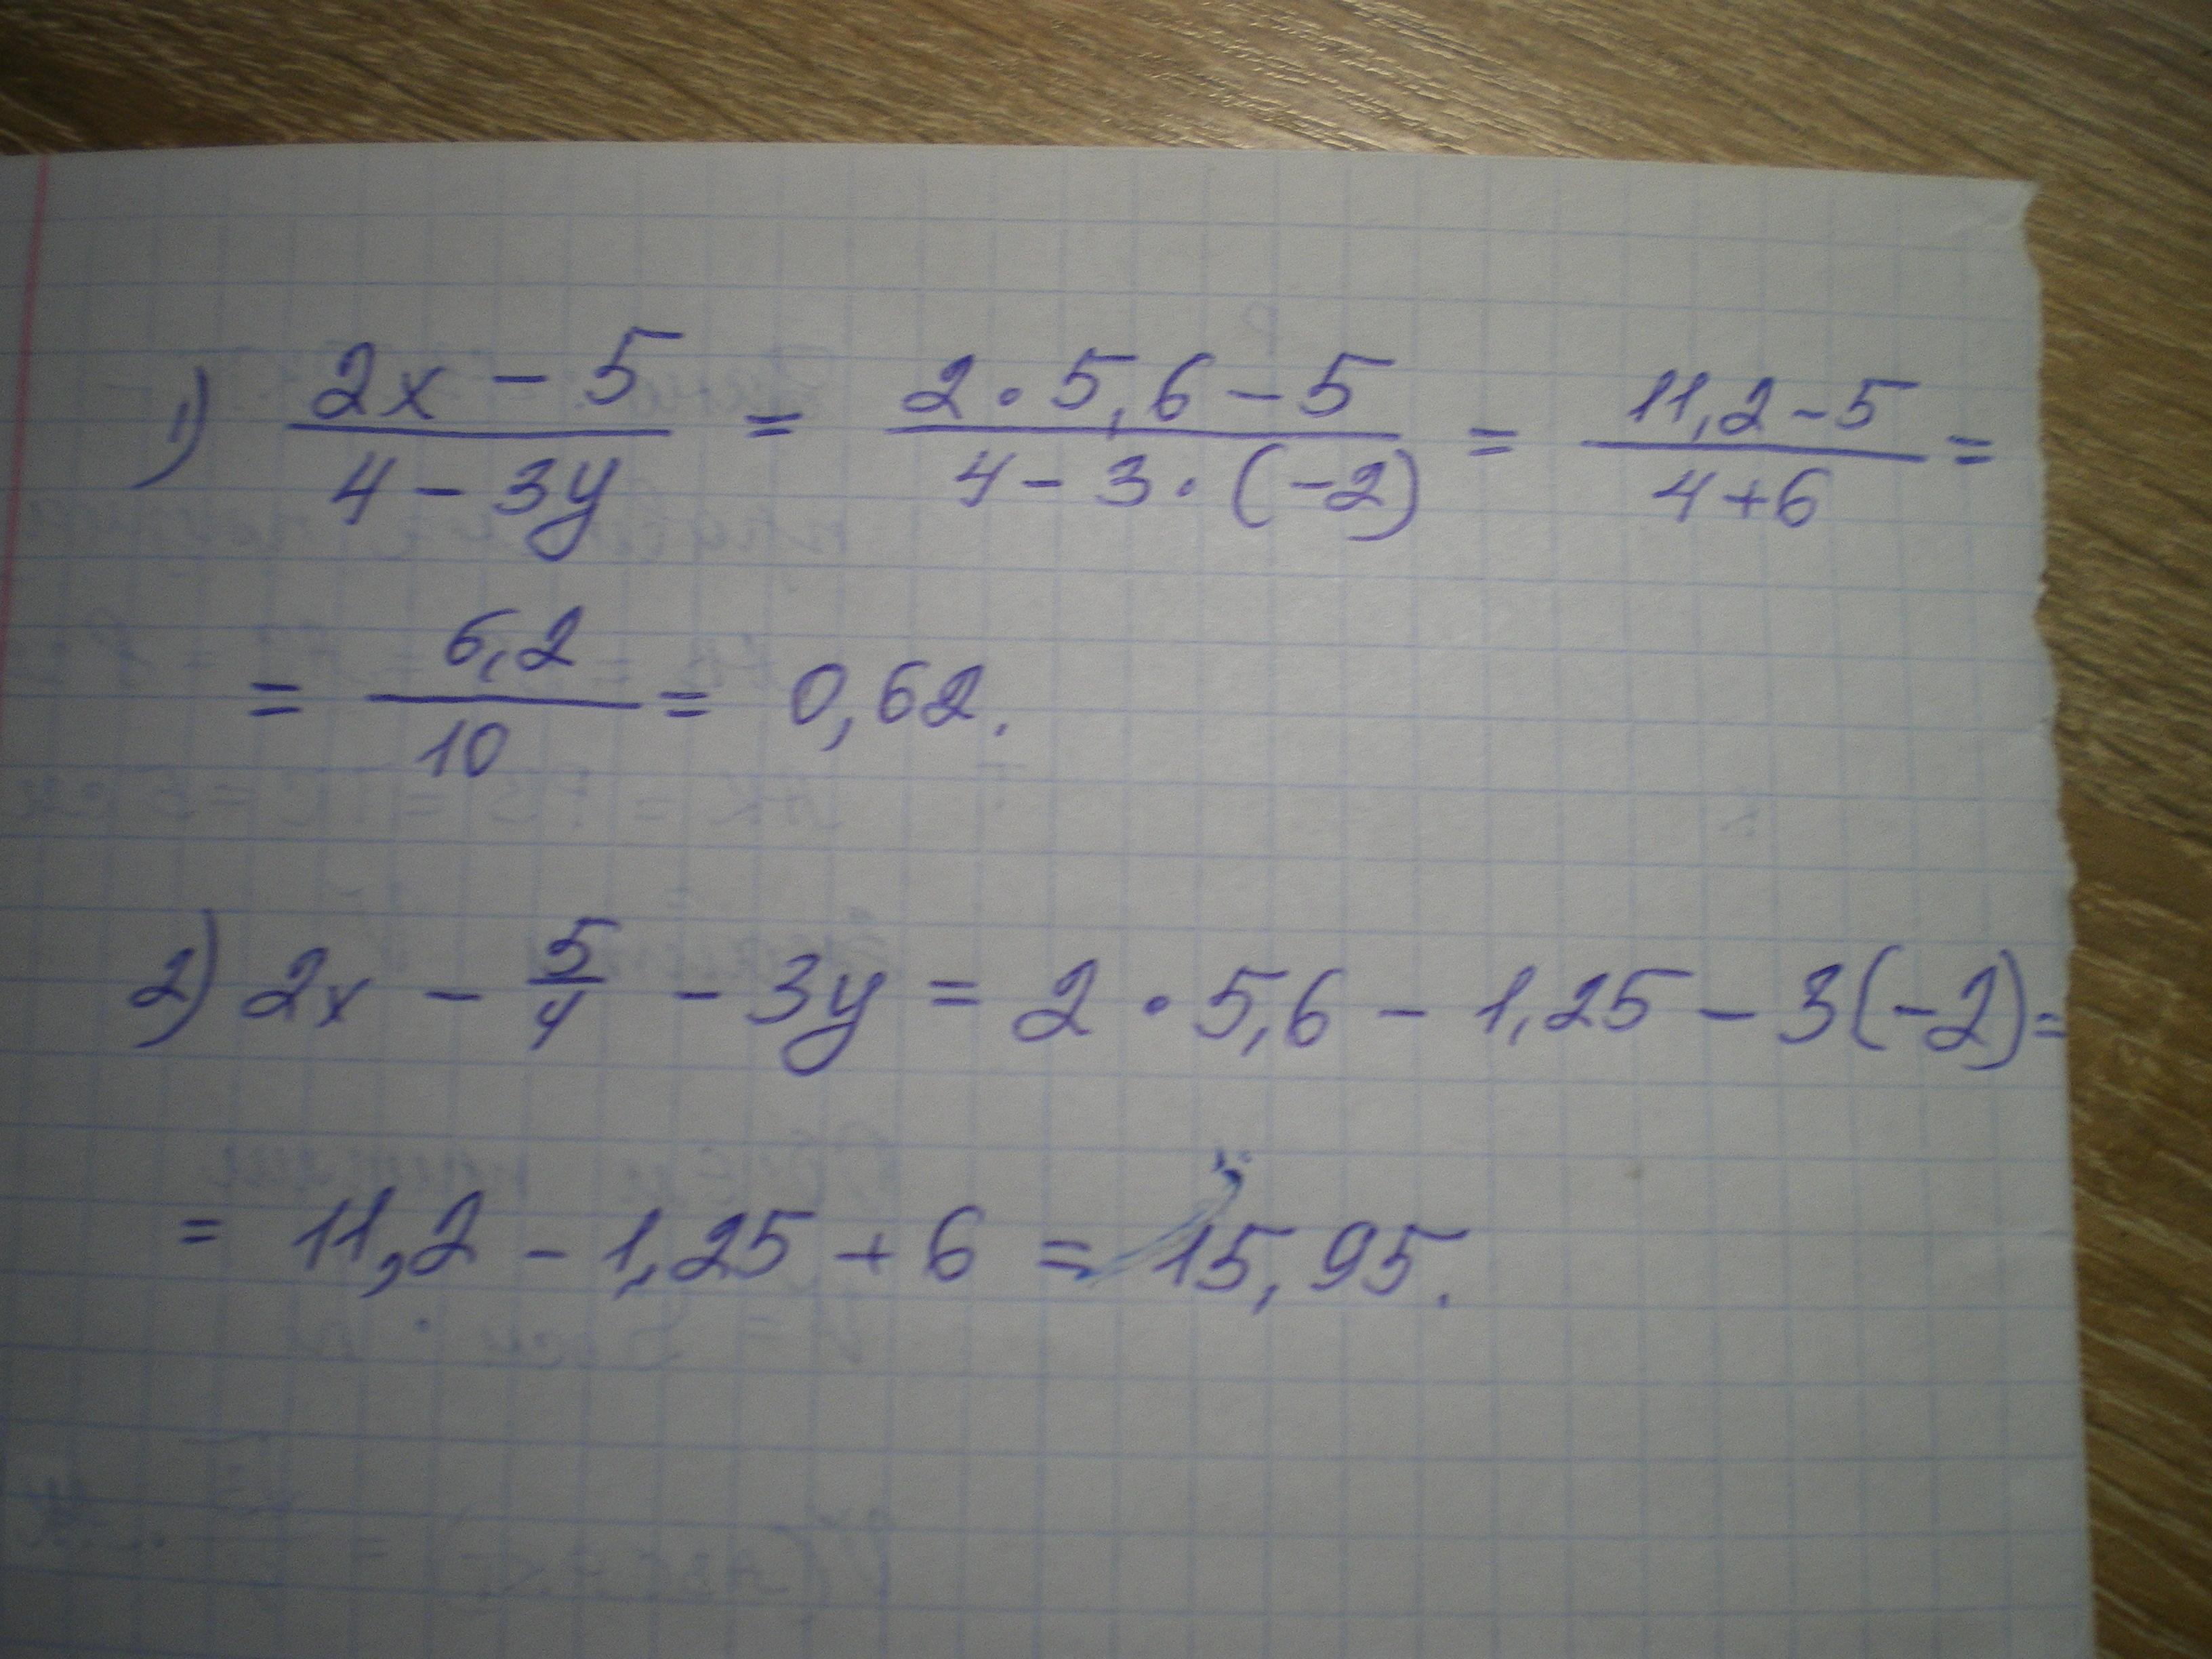 1) (2x - 5)/(4 - 3y) = (2 · 5,6 - 5)/(4 - 3 · (-2)) = (11,2 - 5)/(4 + 6) =
= 6,2/10 = 0,62.
2) 2x - 5/4 - 3y = 2 · 5,6 - 1,25 - 3(-2) =
= 11,2 - 1,25 + 6 = 15,95.